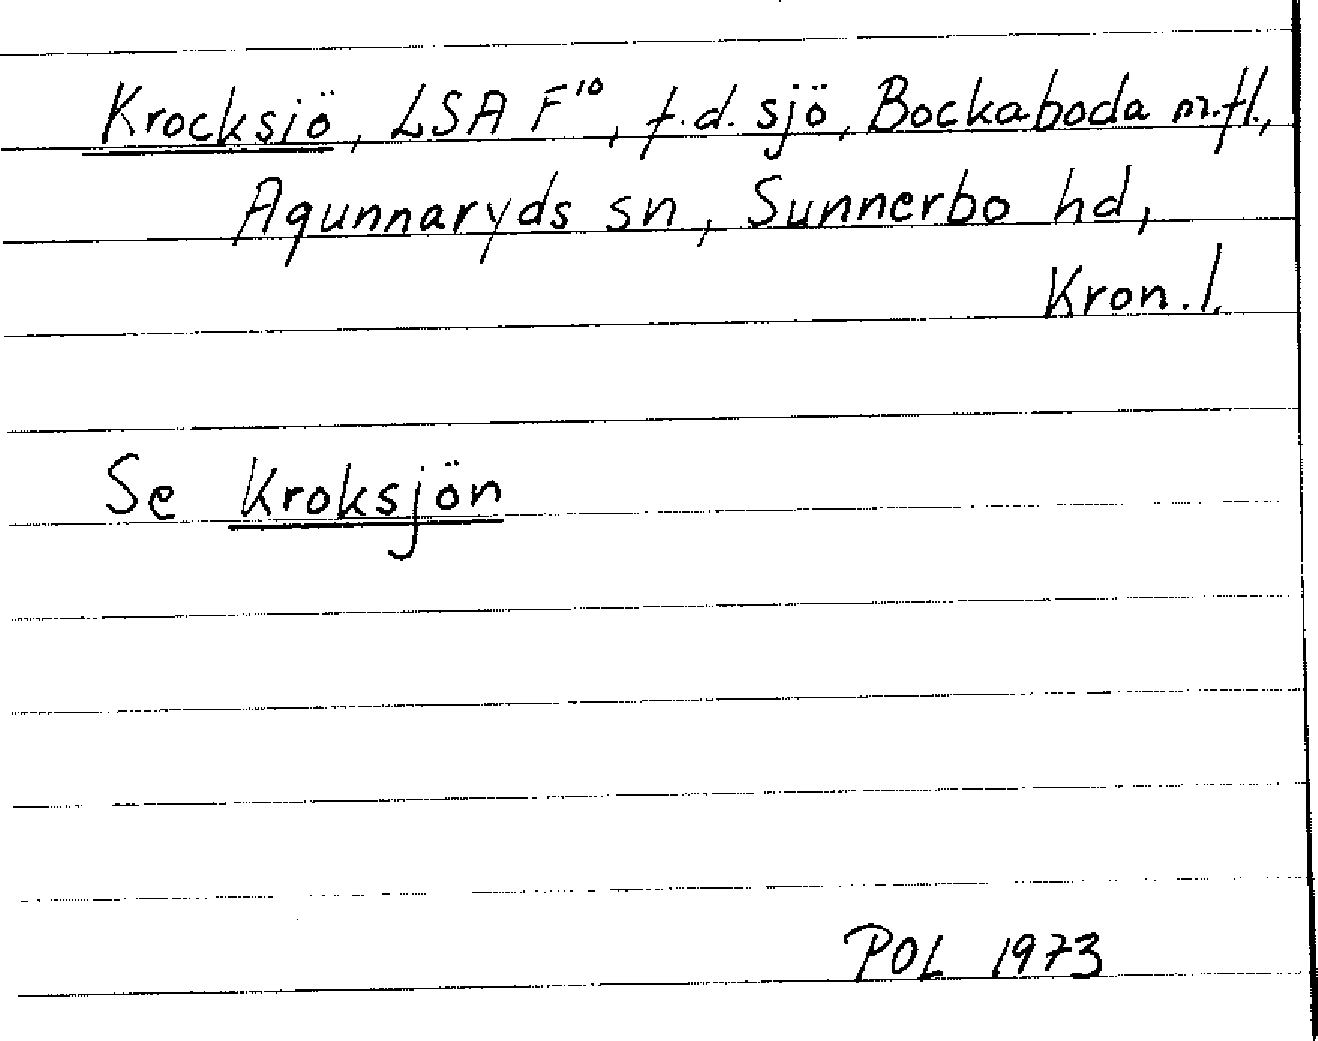 Krocksiö, LSA F¹⁰, f.d. sjö, Bockaboda m.fl.,
Agunnaryds sn, Sunnerbo hd,
Kron.l.
Se Kroksjön
POL 1973